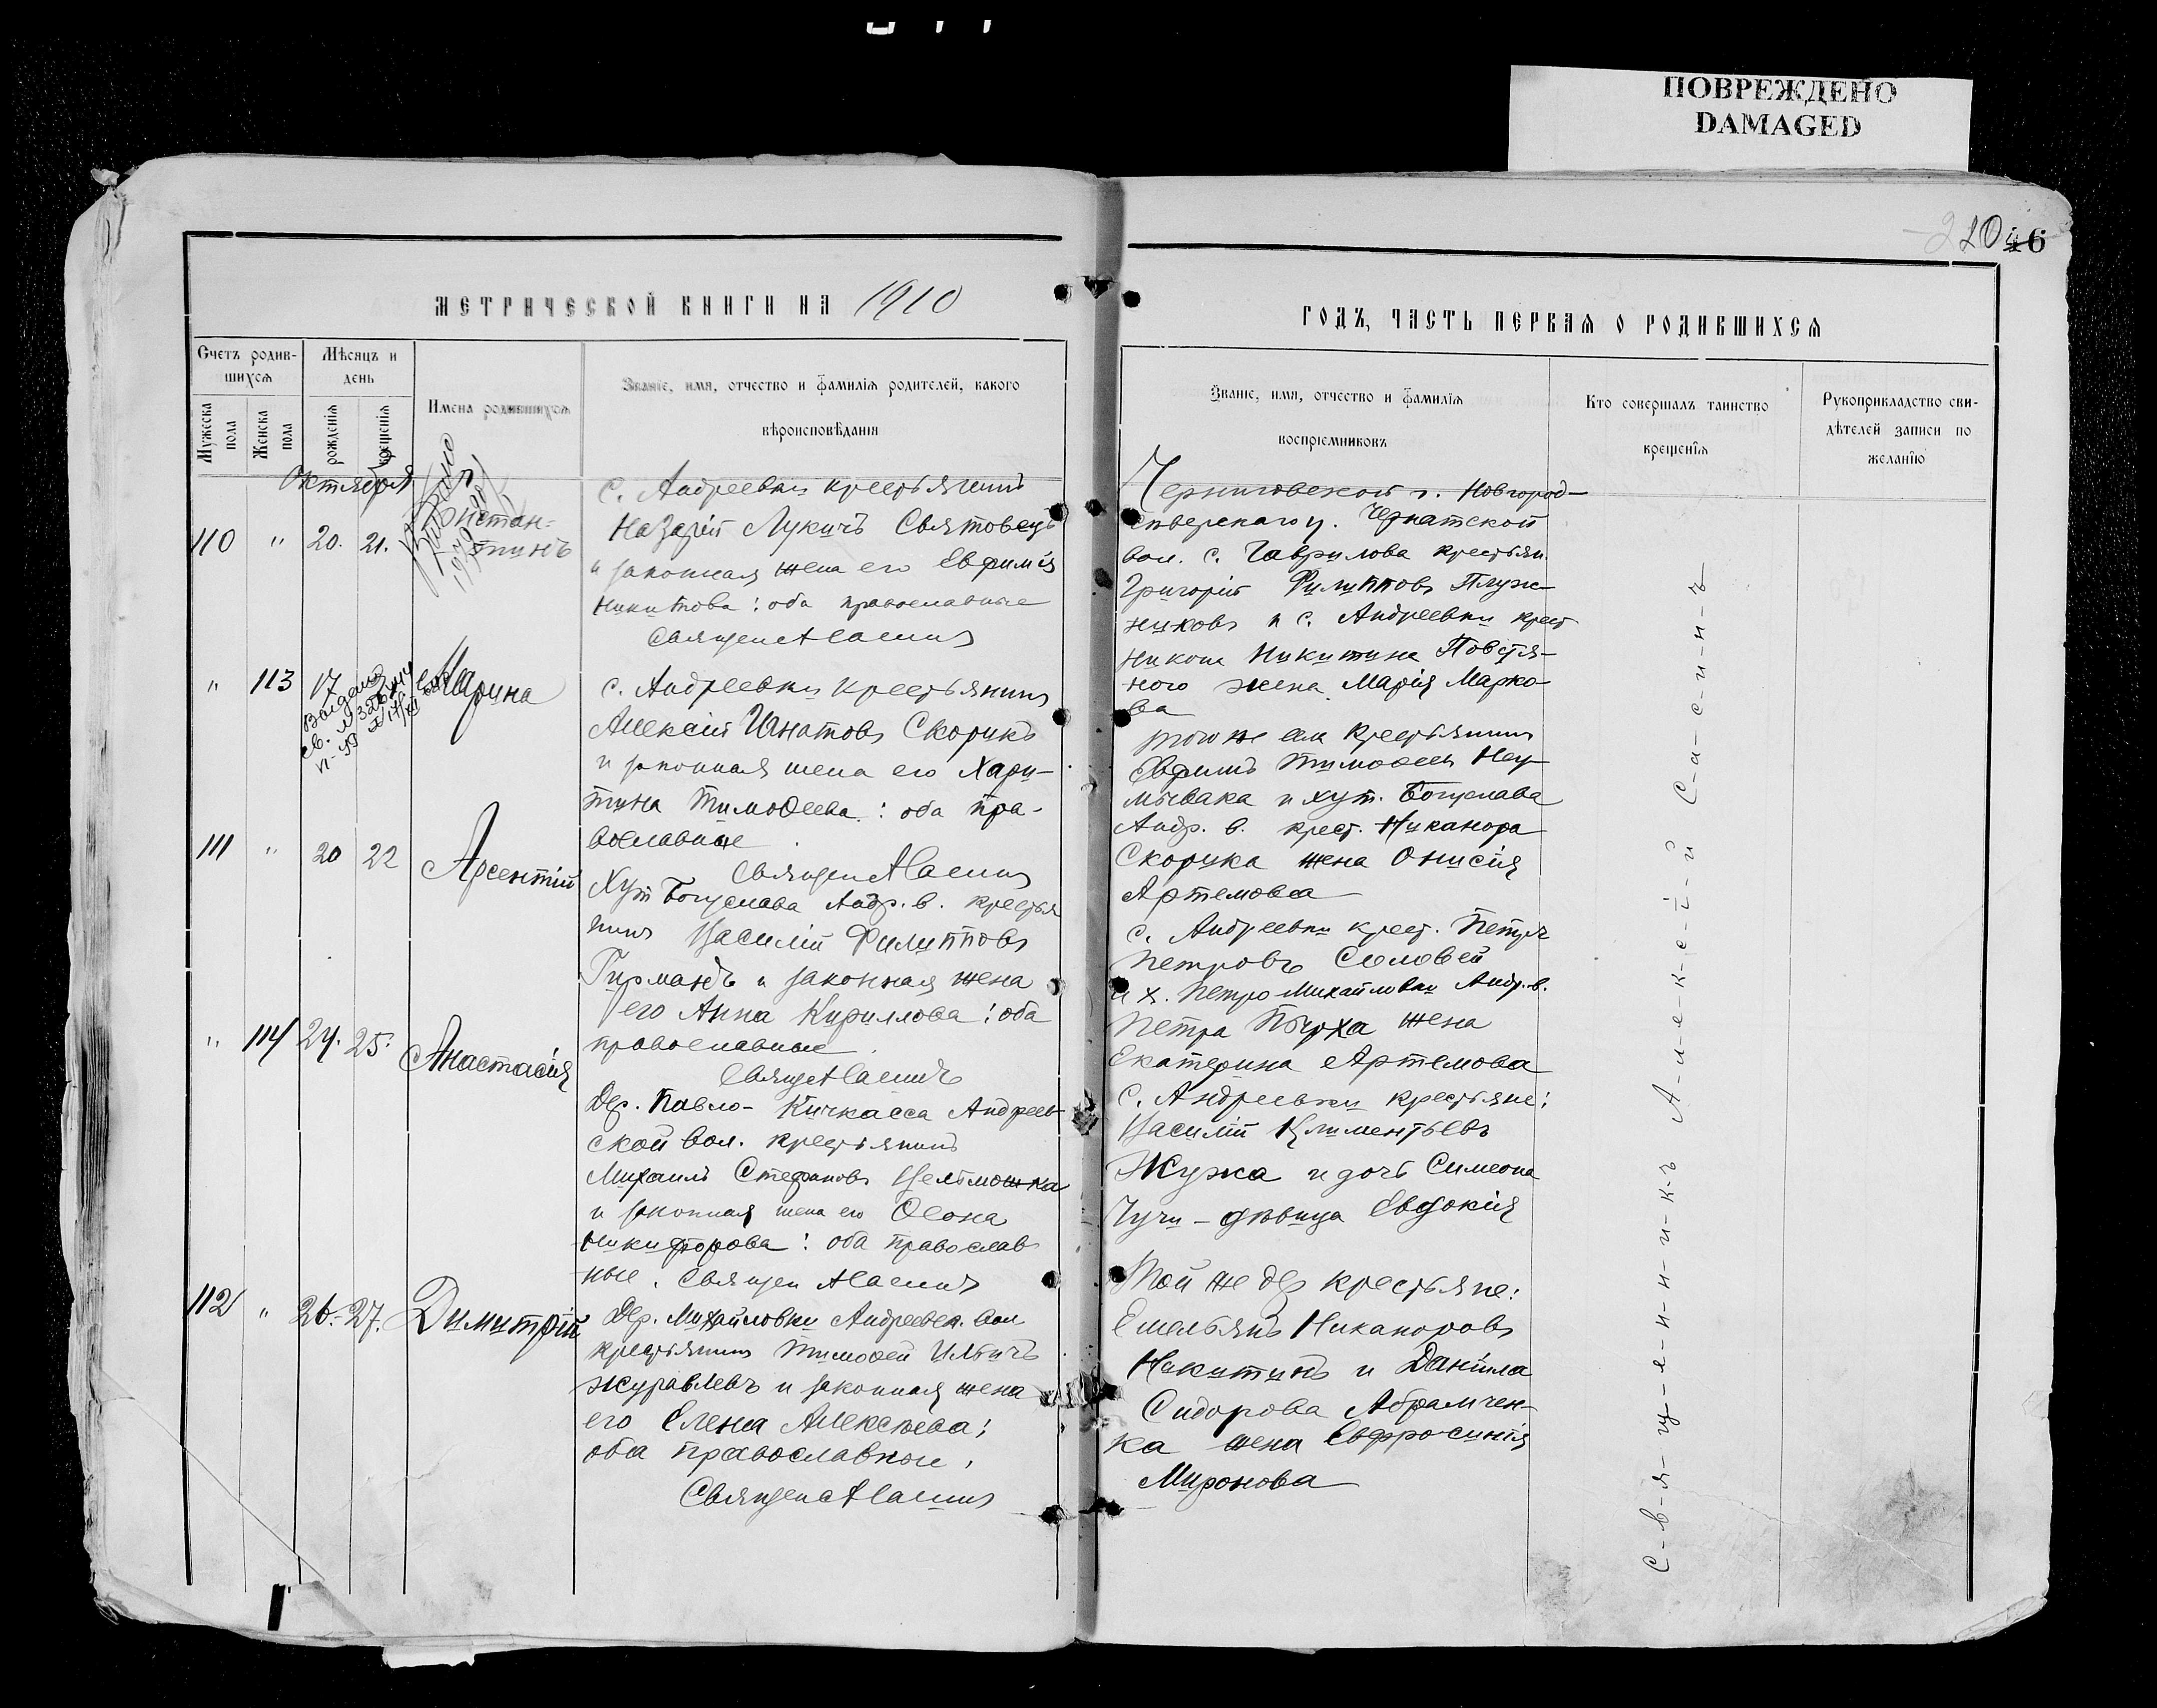 ПОВРЕЖДЕНО
DAMAGED
210 46
МЕТРИЧЕСКОЙ КНИГИ НА 1910
ГОДЪ, ЧАСТЬ ПЕРВАЯ О РОДИВШИХСЯ
Счетъ родив-
шихся
Мѣсяцъ и
день
Мужеска
пола
Женска
пола
рожденія
крещенія
Имена родившихся
Званіе, имя, отчество и фамилія родителей, какого
вѣроисповѣданія
Званіе, имя, отчество и фамилія
воспріемниковъ
Кто совершалъ таинство
крещенія
Рукоприкладство сви-
дѣтелей записи по
желанію
Октября
110 " 20. 21.
Констан-
тинъ
с. Андреевки крестьянинъ
Назарій Лукичъ Святовецъ
и законная жена его Евфимія
Никитова: оба православные
Священ А Саминъ
Черниговской г. Новгород-
сѣверскаго у. Чернатской
вол. с. Гаврилова крестьян.
Григорій Филипповъ Плуж-
никовъ и с. Андреевки крест
Никона Никитина Повстя-
ного жена Марія Марко-
ва
" 113 17
Марина
с. Андреевки крестьянинъ
Алексій Игнатовъ Скорикъ
и законная жена его Хари-
тина Тимофеева: оба пра-
вославные
Священ А Саминъ
того же села крестьянинъ
Евфимъ Тимофеевъ Неу-
мывака и хут. Богуслава
Андр. в. крест. Никанора
Скорика жена Онисія
Артемова
111 " 20 22
Арсентій
Хут Богуслава Андр. в. крестья
нинъ Василій Филипповъ
Гирманъ и законная жена
его Анна Кириллова: оба
православные
Священ А Саминъ
с. Андреевки крест. Петръ
Петровъ Соловей
и х. Петро Михайловки Андр. в.
Петра Пырха жена
Екатерина Артемова
" 114 24. 25.
Анастасія
Дер. Павло-Кичкасса Андреев-
ской вол. крестьянинъ
Михаилъ Стефановъ
и законная жена его
Никифорова: оба православ
ные. Священ А Саминъ
с. Андреевки крестьяне:
Василій Климентьевъ
Жужа и дочь Симеона
Чучи - дѣвица Евдокія
112 " 26. 27.
Димитрій
Дер. Михайловки Андреевск. вол
крестьянинъ Тимофей Ильичъ
Журавлевъ и законная жена
его Елена Алексѣева;
оба православнои.
Священ А Саминъ
Той же дер крестьяне:
Емельянъ Никаноровъ
Никитинъ и Данила
Сидорова Абрамчен-
ка жена Евфросинія
Миронова
С-в-я-щ-е-н-н-и-к-ъ А-л-е-к-с-і-й С-а-с-и-н-ъ